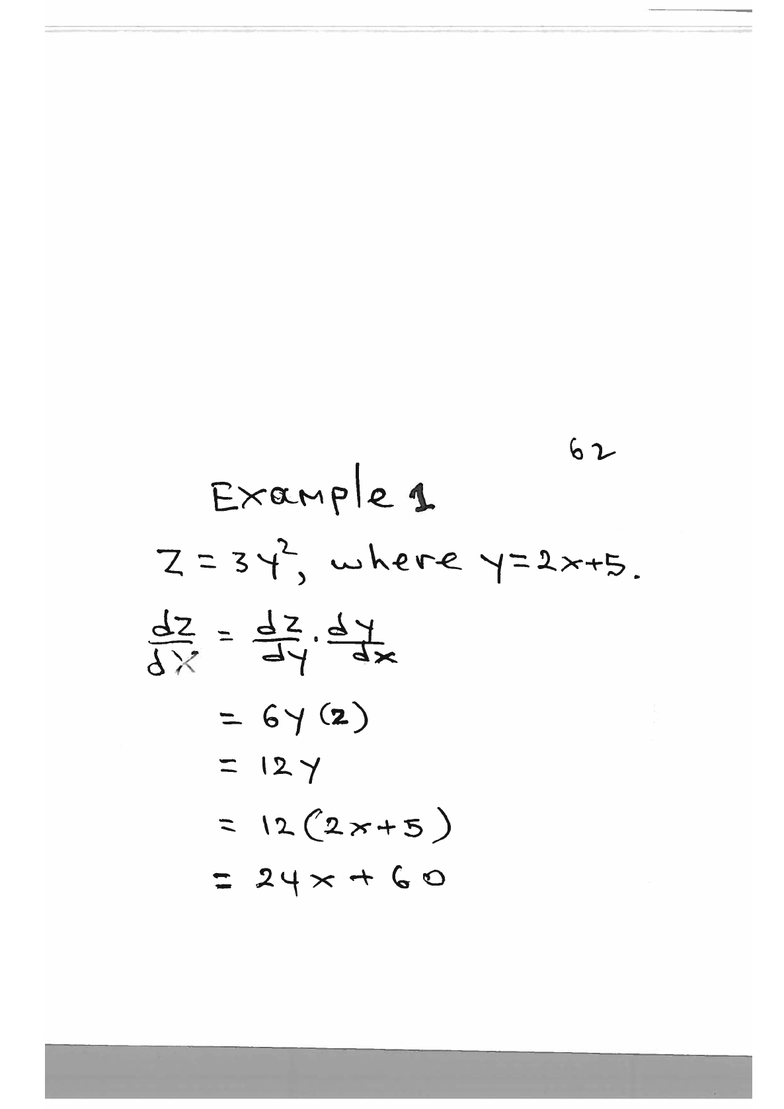 62
Example 1
Z = 3y², where y=2x+5.
dz/dx = dz/dy . dy/dx
= 6y(2)
= 12y
= 12(2x+5)
= 24x + 60